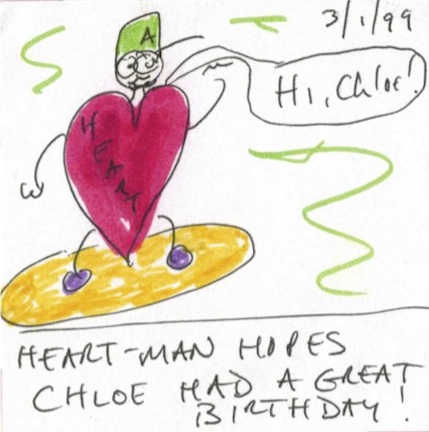 3/1/99
A
Hi, Chloe!
HEART
HEART-MAN HOPES
CHLOE HAD A GREAT
BIRTHDAY!